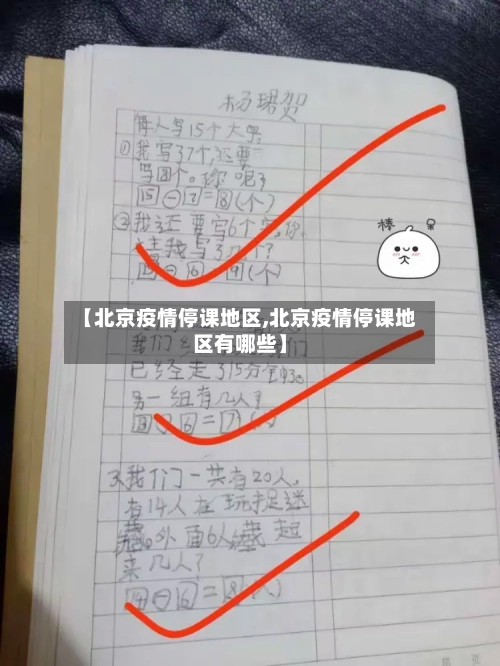 杨珺贺
每人写15个大字。
①我写了7个,还要
写8个。你呢?
15-7=8(个)
②我还要写6个字,你
猜我写了几个?
15-6 9(个)
棒 呆
【北京疫情停课地区,北京疫情停课地
区有哪些】
已经走了15分钟。
另一组有几人?
13-6=7(人)
3、我们一共有20人,
有14人在玩捉迷
藏。外面6人,藏起
来几人?
14-6=8(人)